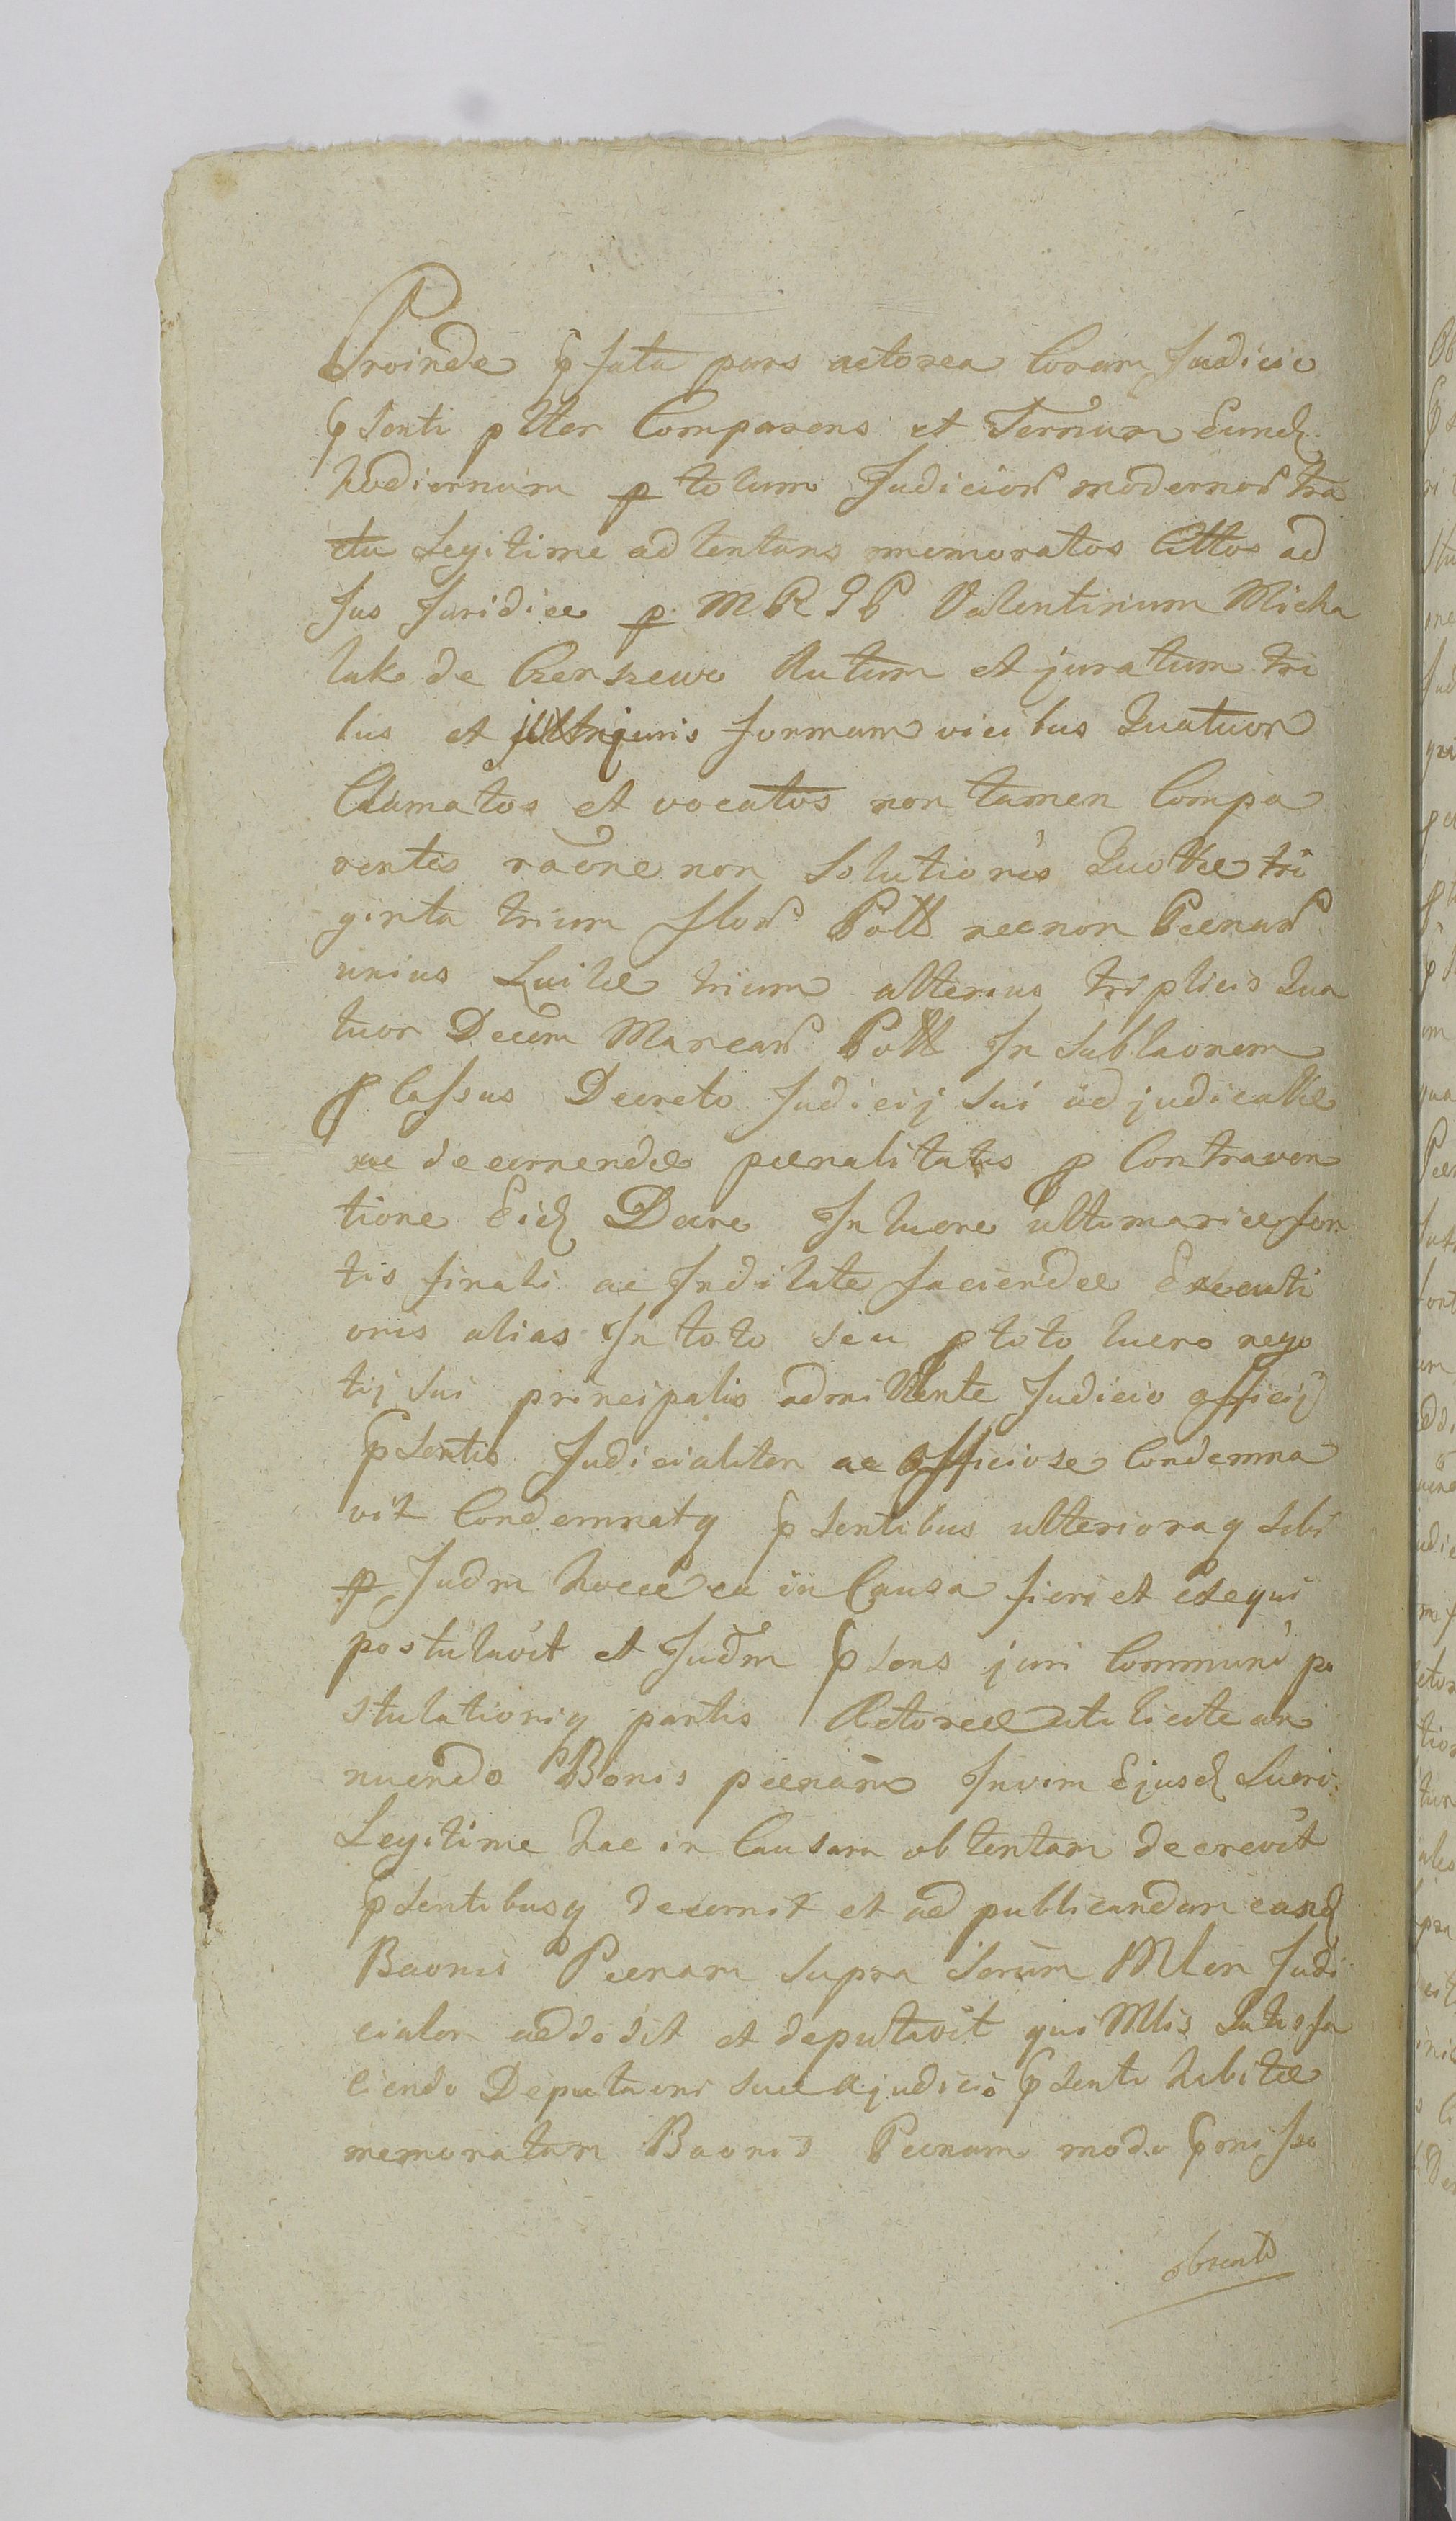 Proinde pfata pars actorea Coram Judicio
psenti plter Comparens et Termum Eund
hodiernum p totum Judicior modernor tra
ctu Legitime adtentans memoratos Cittos ad
Jus Juridice p. M R J P Valentinum Micha
lak de Czerszewo Autum et juratum tri
bus et juris formam vicibus Quatuor
Clamatos et vocatos non tamen Compa
rentes raõne non Solutionis Quottae tri
ginta trium flor Poll necnon Poenar
unius Luitae trium alterius triplicis Qua
tuor Decem Marcar Poll In Sublaonem
p lassus Decreto Judicij Sui adjudicattae
ac decernendae poenalitatis p Contraven
tione Eid Decre In lucro ultimariae for
tis finali ac Indilate faciendae Executi
onis alias In toto seu p toto lucro nego
tij Sui principalis admittente Judicio officij
psentis Judicialiter ac Officiose Condemna
vit Condemnatq psentibus ulterioraq Sibi
p Judm hocce ea in Causa fieri et exequi
postulavit et Judm psens juri Communi po
stulationiq partis Actoreae uti licite an
nuendo Bonis poenam In vim Ejusd Lucri
Legitime hac in Causam obtentam decrevit
psentibusq decernit et ad publicandam eand
Baonis Poenam supra Serum Mlem Judi
cialem addidit et deputavit qui Mlis Satisfa
ciendo Deputaoni suae a judicio psenti habitae
memoratam Baonis Poenam modo pmisso